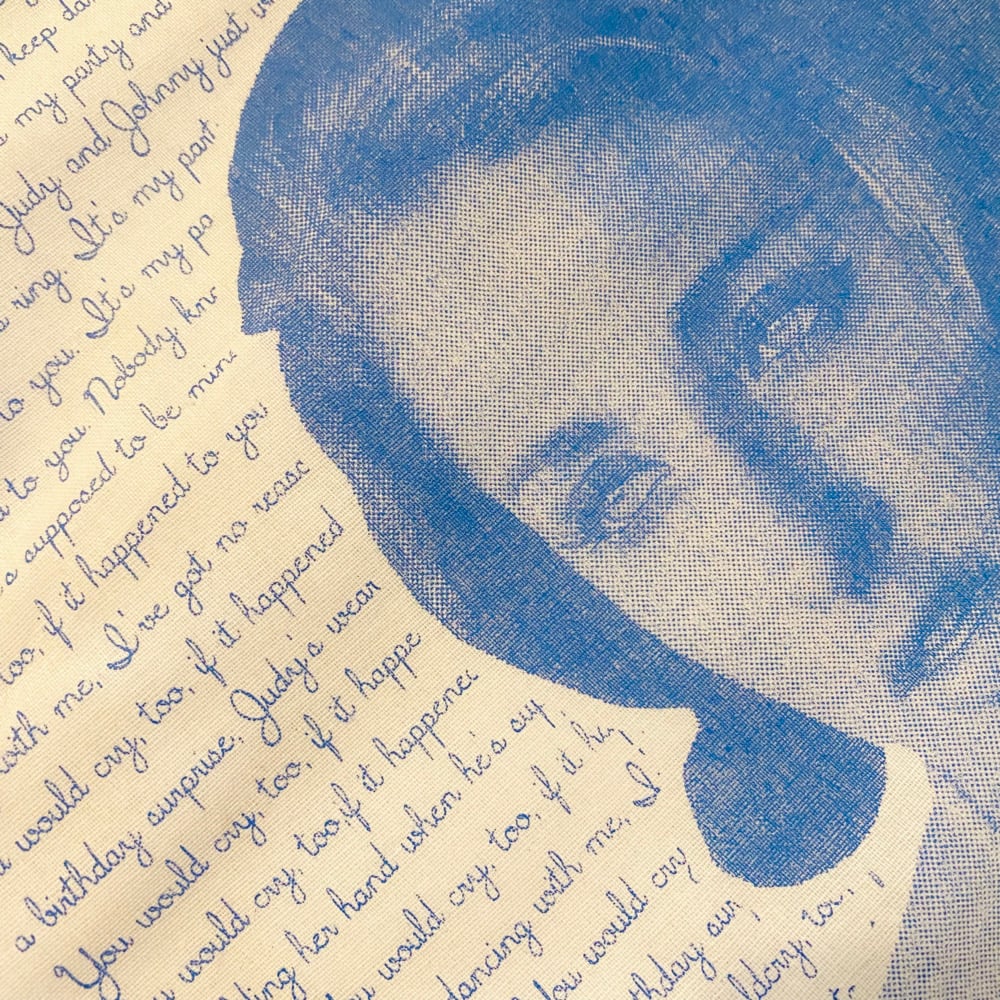 keep
my party and
Judy and Johnny just
ring. It's my part
to you. It's my pa
to you. Nobody kn
supposed to be mine
too, if it happened to you
with me, I've got no reaso
would cry, too, if it happened
a birthday surprise, Judy's wear
You would cry too, if it happe
would cry, too, if it happened
her hand when he's cry
would cry, too, if it
dancing with me, I
You would cry
thday sur
ldcry, too,